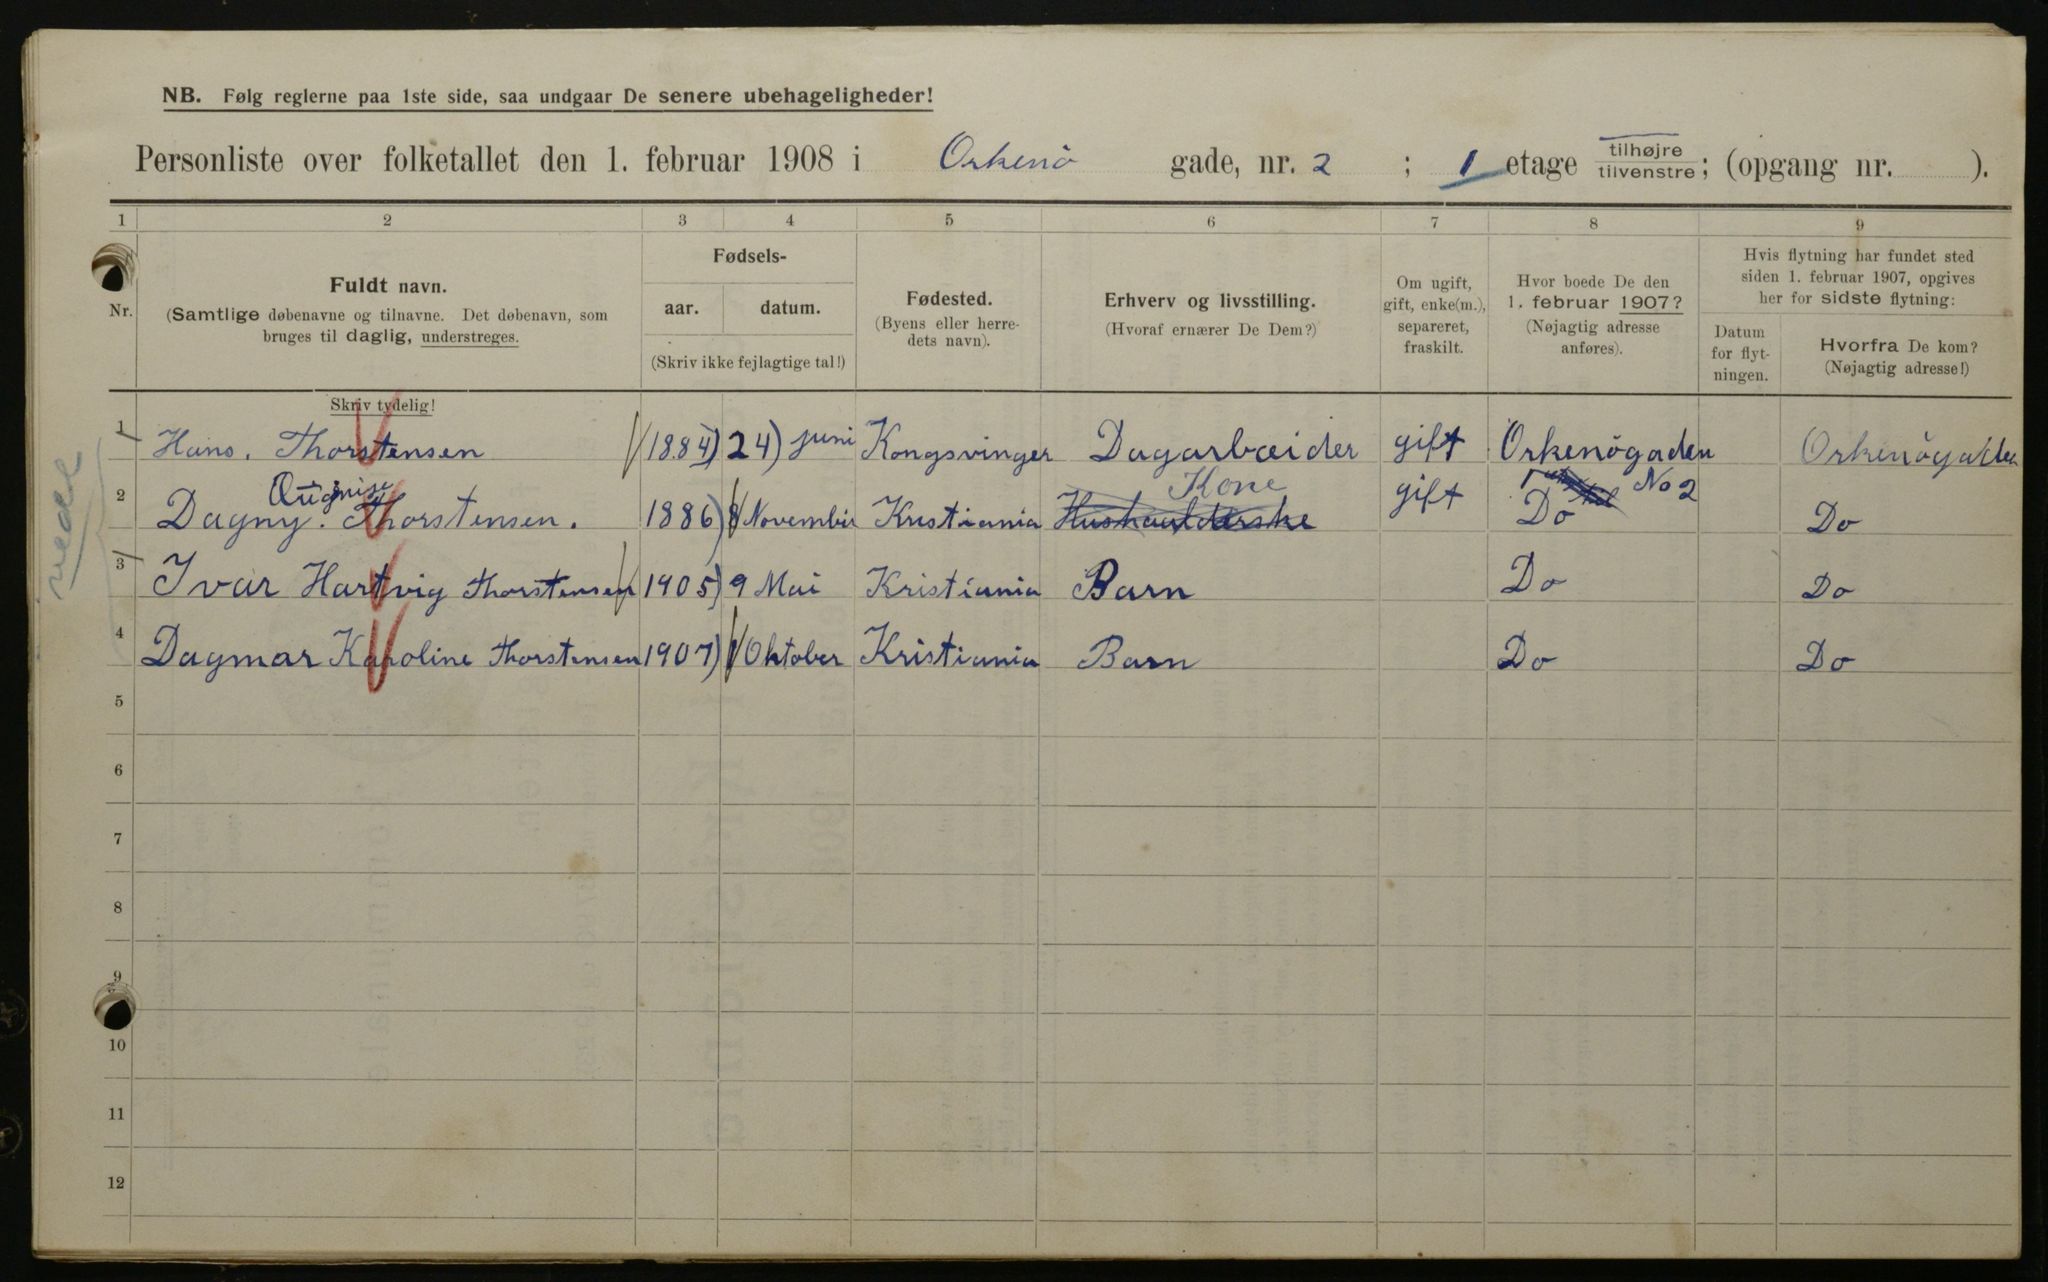 NB. Følg reglerne paa 1ste side, saa undgaar De senere ubehageligheder!
Personliste over folketallet den 1. februar 1908 i Orkenö gade, nr. 2 ; 1 etage tilhøjre tilvenstre; (opgang nr. ).
1 2 3 4 5 6 7 8 9
Nr.
Fuldt navn.
(Samtlige døbenavne og tilnavne. Det døbenavn, som
bruges til daglig, understreges.
Fødsels-
aar. datum.
(Skriv ikke fejlagtige tal!)
Fødested.
(Byens eller herre-
dets navn).
Erhverv og livsstilling.
(Hvoraf ernærer De Dem?)
Om ugift,
gift, enke(m.),
separeret,
fraskilt.
Hvor boede De den
1. februar 1907?
(Nøjagtig adresse
anføres).
Hvis flytning har fundet sted
siden 1. februar 1907, opgives
her for sidste flytning:
Datum
for flyt-
ningen.
Hvorfra De kom?
(Nøjagtig adresse!)
Skriv tydelig!
1 Hans. Thorstensen 1884) 24) juni Kongsvinger Dagarbeider gift Orkenögaden Orkenögaden
No 2
Kone
2 Dagny. Thorstensen. 1886) 8 November Kristiania Hushaulderske gift Do Do
3 Ivar Hartvig Thorstensen 1905) 9 Mai Kristiania Barn Do Do
4 Dagmar Karoline Thorstensen 1907) 1 Oktober Kristiania Barn Do Do
5
6
7
8
9
10
11
12